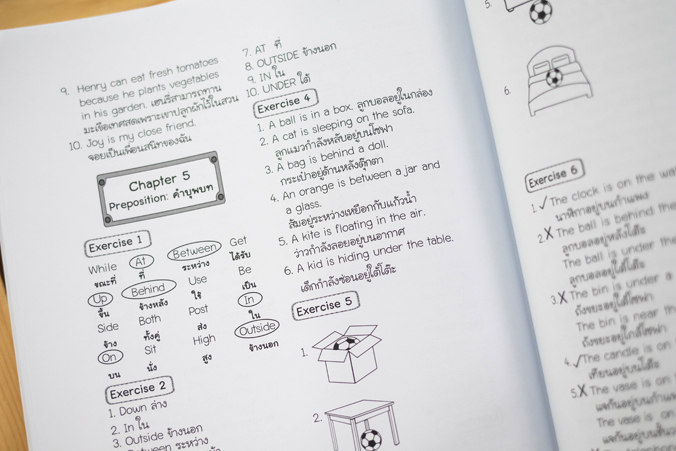 9. Henry can eat fresh tomatoes
because he plants vegetables
in his garden. เฮนรี่สามารถทาน
มะเขือเทศสดเพราะเขาปลูกผักไว้ในสวน
10. Joy is my close friend.
จอยเป็นเพื่อนสนิทของฉัน
Chapter 5
Preposition: คำบุพบท
Exercise 1
While At Between Get
ขณะที่ ที่ ระหว่าง ได้รับ
Up Behind Use Be
ขึ้น ข้างหลัง ใช้ เป็น
Side Both Post In
ข้าง ทั้งคู่ ส่ง ใน
On Sit High Outside
บน นั่ง สูง ข้างนอก
Exercise 2
1. Down ล่าง
2. In ใน
3. Outside ข้างนอก
Between ระหว่าง
7. AT ที่
8. OUTSIDE ข้างนอก
9. IN ใน
10. UNDER ใต้
Exercise 4
1. A ball is in a box. ลูกบอลอยู่ในกล่อง
2. A cat is sleeping on the sofa.
ลูกแมวกำลังหลับอยู่บนโซฟา
3. A bag is behind a doll.
กระเป๋าอยู่ด้านหลังตุ๊กตา
4. An orange is between a jar and
a glass.
ส้มอยู่ระหว่างเหยือกกับแก้วน้ำ
5. A kite is floating in the air.
ว่าวกำลังลอยอยู่บนอากาศ
6. A kid is hiding under the table.
เด็กกำลังซ่อนอยู่ใต้โต๊ะ
Exercise 5
1.
2.
5.
6.
Exercise 6
1. ✓ The clock is on the wa
นาฬิกาอยู่บนกำแพง
2. X The ball is behind the
ลูกบอลอยู่หลังโต๊ะ
The ball is under the
ลูกบอลอยู่ใต้โต๊ะ
3. X The bin is under a
ถังขยะอยู่ใต้โซฟา
The bin is near th
ถังขยะอยู่ใกล้โซฟา
4. ✓ The candle is on
เทียนอยู่บนโต๊ะ
5. X The vase is on
แจกันอยู่บน
The vase is on
แจกันอยู่บน